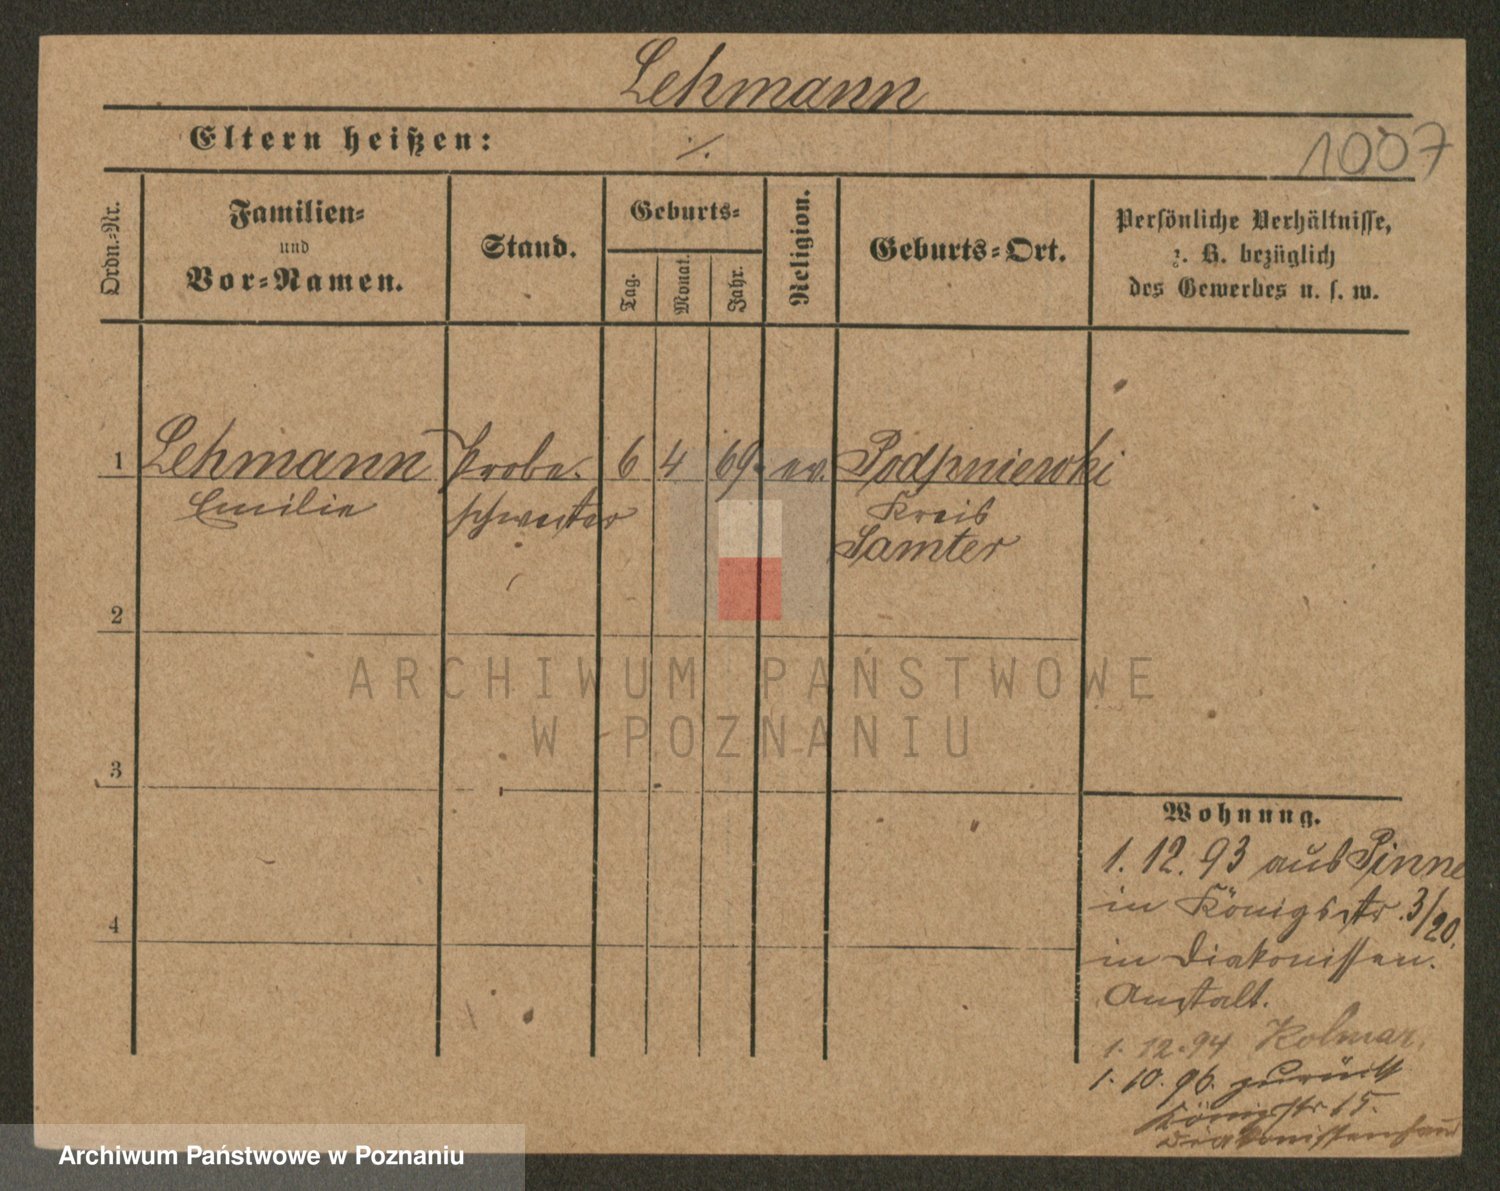 Lehmann
Eltern heißen: ./.
1007
Ordn.-Nr.
Familien-
und
Vor-Namen.
Stand.
Geburts-
Tag.
Monat.
Jahr.
Religion.
Geburts-Ort.
Persönliche Verhältnisse,
z. B. bezüglich
des Gewerbes u. s. w.
1 Lehmann Probe- 6 4 69. ev. Podpniewki
Emilie schwester Kreis
Samter
2
3
4
Wohnung.
1. 12. 93 aus Pinne
in Königstr. 3/20.
in Diakonissen-
Anstalt.
1. 12. 94 Kolmar.
1. 10. 96. zurück
Königstr 15.
Diakonissenhaus
ARCHIWUM PAŃSTWOWE
W POZNANIU
Archiwum Państwowe w Poznaniu